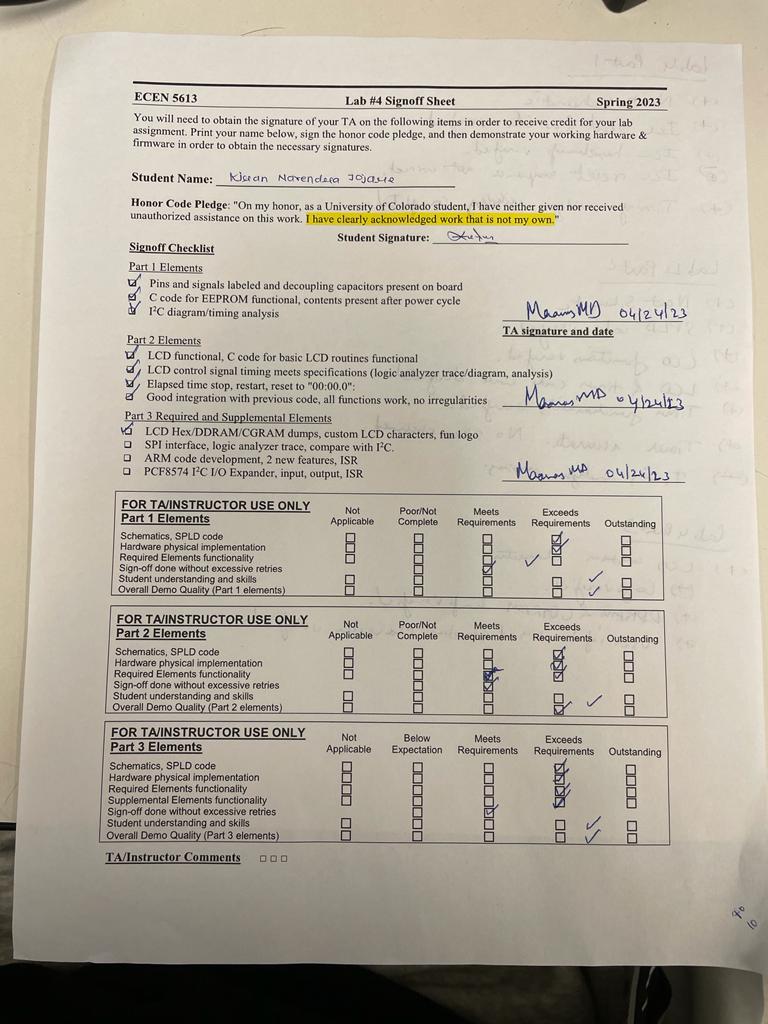 ECEN 5613 Lab #4 Signoff Sheet Spring 2023
You will need to obtain the signature of your TA on the following items in order to receive credit for your lab
assignment. Print your name below, sign the honor code pledge, and then demonstrate your working hardware &
firmware in order to obtain the necessary signatures.
Student Name: Kiran Narendra Jojare
Honor Code Pledge: "On my honor, as a University of Colorado student, I have neither given nor received
unauthorized assistance on this work. I have clearly acknowledged work that is not my own."
Student Signature:
Signoff Checklist
Part 1 Elements
Pins and signals labeled and decoupling capacitors present on board
C code for EEPROM functional, contents present after power cycle
I²C diagram/timing analysis
Maanas MD 04/24/23
TA signature and date
Part 2 Elements
LCD functional, C code for basic LCD routines functional
LCD control signal timing meets specifications (logic analyzer trace/diagram, analysis)
Elapsed time stop, restart, reset to "00:00.0":
Good integration with previous code, all functions work, no irregularities
Maanas MD 04/24/23
Part 3 Required and Supplemental Elements
LCD Hex/DDRAM/CGRAM dumps, custom LCD characters, fun logo
SPI interface, logic analyzer trace, compare with I²C.
ARM code development, 2 new features, ISR
PCF8574 I²C I/O Expander, input, output, ISR
Maanas MD 04/24/23
FOR TA/INSTRUCTOR USE ONLY
Part 1 Elements
Not Applicable Poor/Not Complete Meets Requirements Exceeds Requirements Outstanding
Schematics, SPLD code
Hardware physical implementation
Required Elements functionality
Sign-off done without excessive retries
Student understanding and skills
Overall Demo Quality (Part 1 elements)
FOR TA/INSTRUCTOR USE ONLY
Part 2 Elements
Not Applicable Poor/Not Complete Meets Requirements Exceeds Requirements Outstanding
Schematics, SPLD code
Hardware physical implementation
Required Elements functionality
Sign-off done without excessive retries
Student understanding and skills
Overall Demo Quality (Part 2 elements)
FOR TA/INSTRUCTOR USE ONLY
Part 3 Elements
Not Applicable Below Expectation Meets Requirements Exceeds Requirements Outstanding
Schematics, SPLD code
Hardware physical implementation
Required Elements functionality
Supplemental Elements functionality
Sign-off done without excessive retries
Student understanding and skills
Overall Demo Quality (Part 3 elements)
TA/Instructor Comments